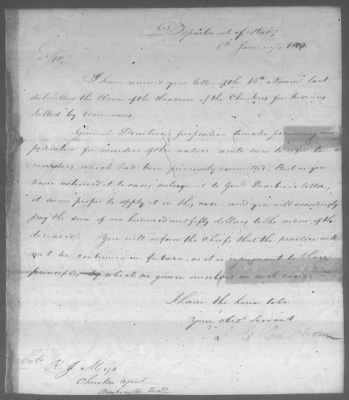 Department of War,
6th January, 1819
Sir,
I have received your letter of the 14th Novem. last,
submitting the claim of the Treasurer of the Cherokees for Indians
killed by Americans.
General Dearborn's proposition to make pecuniary com-
pensation for murders of this nature seems to refer to
murders which had been previously committed. But as you
have
to Genl Dearborn's letter,
it seems proper to apply it in this case and you will accordingly
pay the sum of one hundred and fifty dollars to the order of the
deceased. You will inform the Chiefs that the practice will
not be continued in future, as it is repugnant to those
principles by which we govern ourselves in such cases.
I have the honor to be
Your obt. Servant
J. C. Calhoun
Colo. R. J. Meigs
Cherokee Agent
Washington